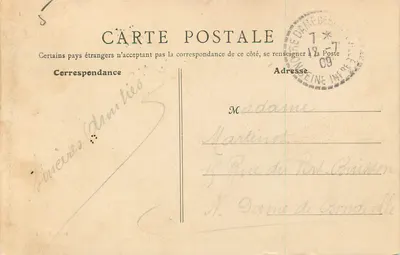 5
CARTE POSTALE
Certains pays étrangers n'acceptant pas la correspondance de ce côté, se renseigner à la Poste
Correspondance
Adresse
7 *
18 -7
09
Sincères Amitiés
Madame
Rue du
N. Dame de Bondeville